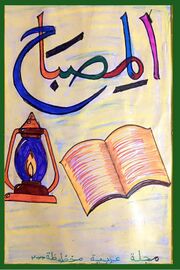 المِصبَاح
مجلة عربية مخطوطة